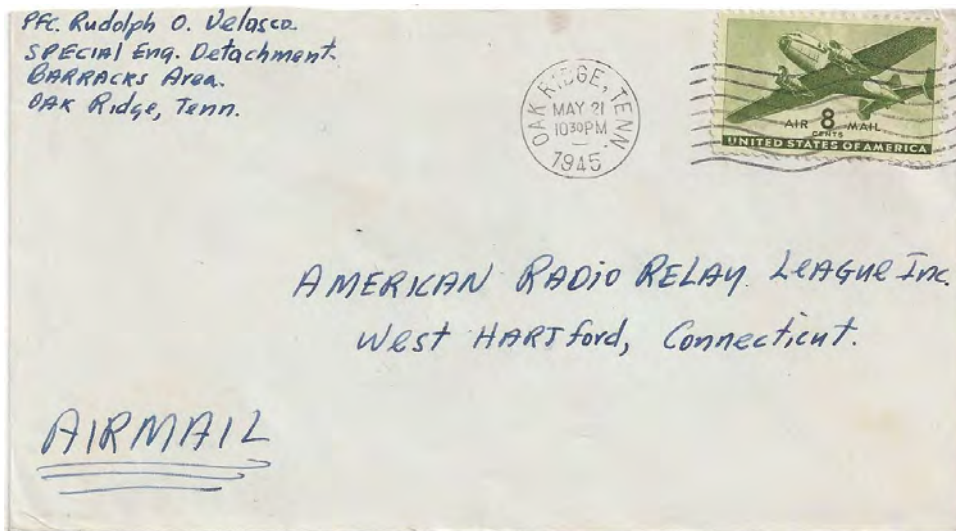 Pfc. Rudolph O. Velasco.
SPECIAl Eng. Detachment.
BARRACKs Area.
OAK Ridge, Tenn.
OAK RIDGE, TENN.
MAY 21
1030PM
1945
AIR 8 MAIL
CENTS
UNITED STATES OF AMERICA
AMERICAN RADIO RELAY LEAGUE Inc.
West HARTford, Connecticut.
AIRMAIL